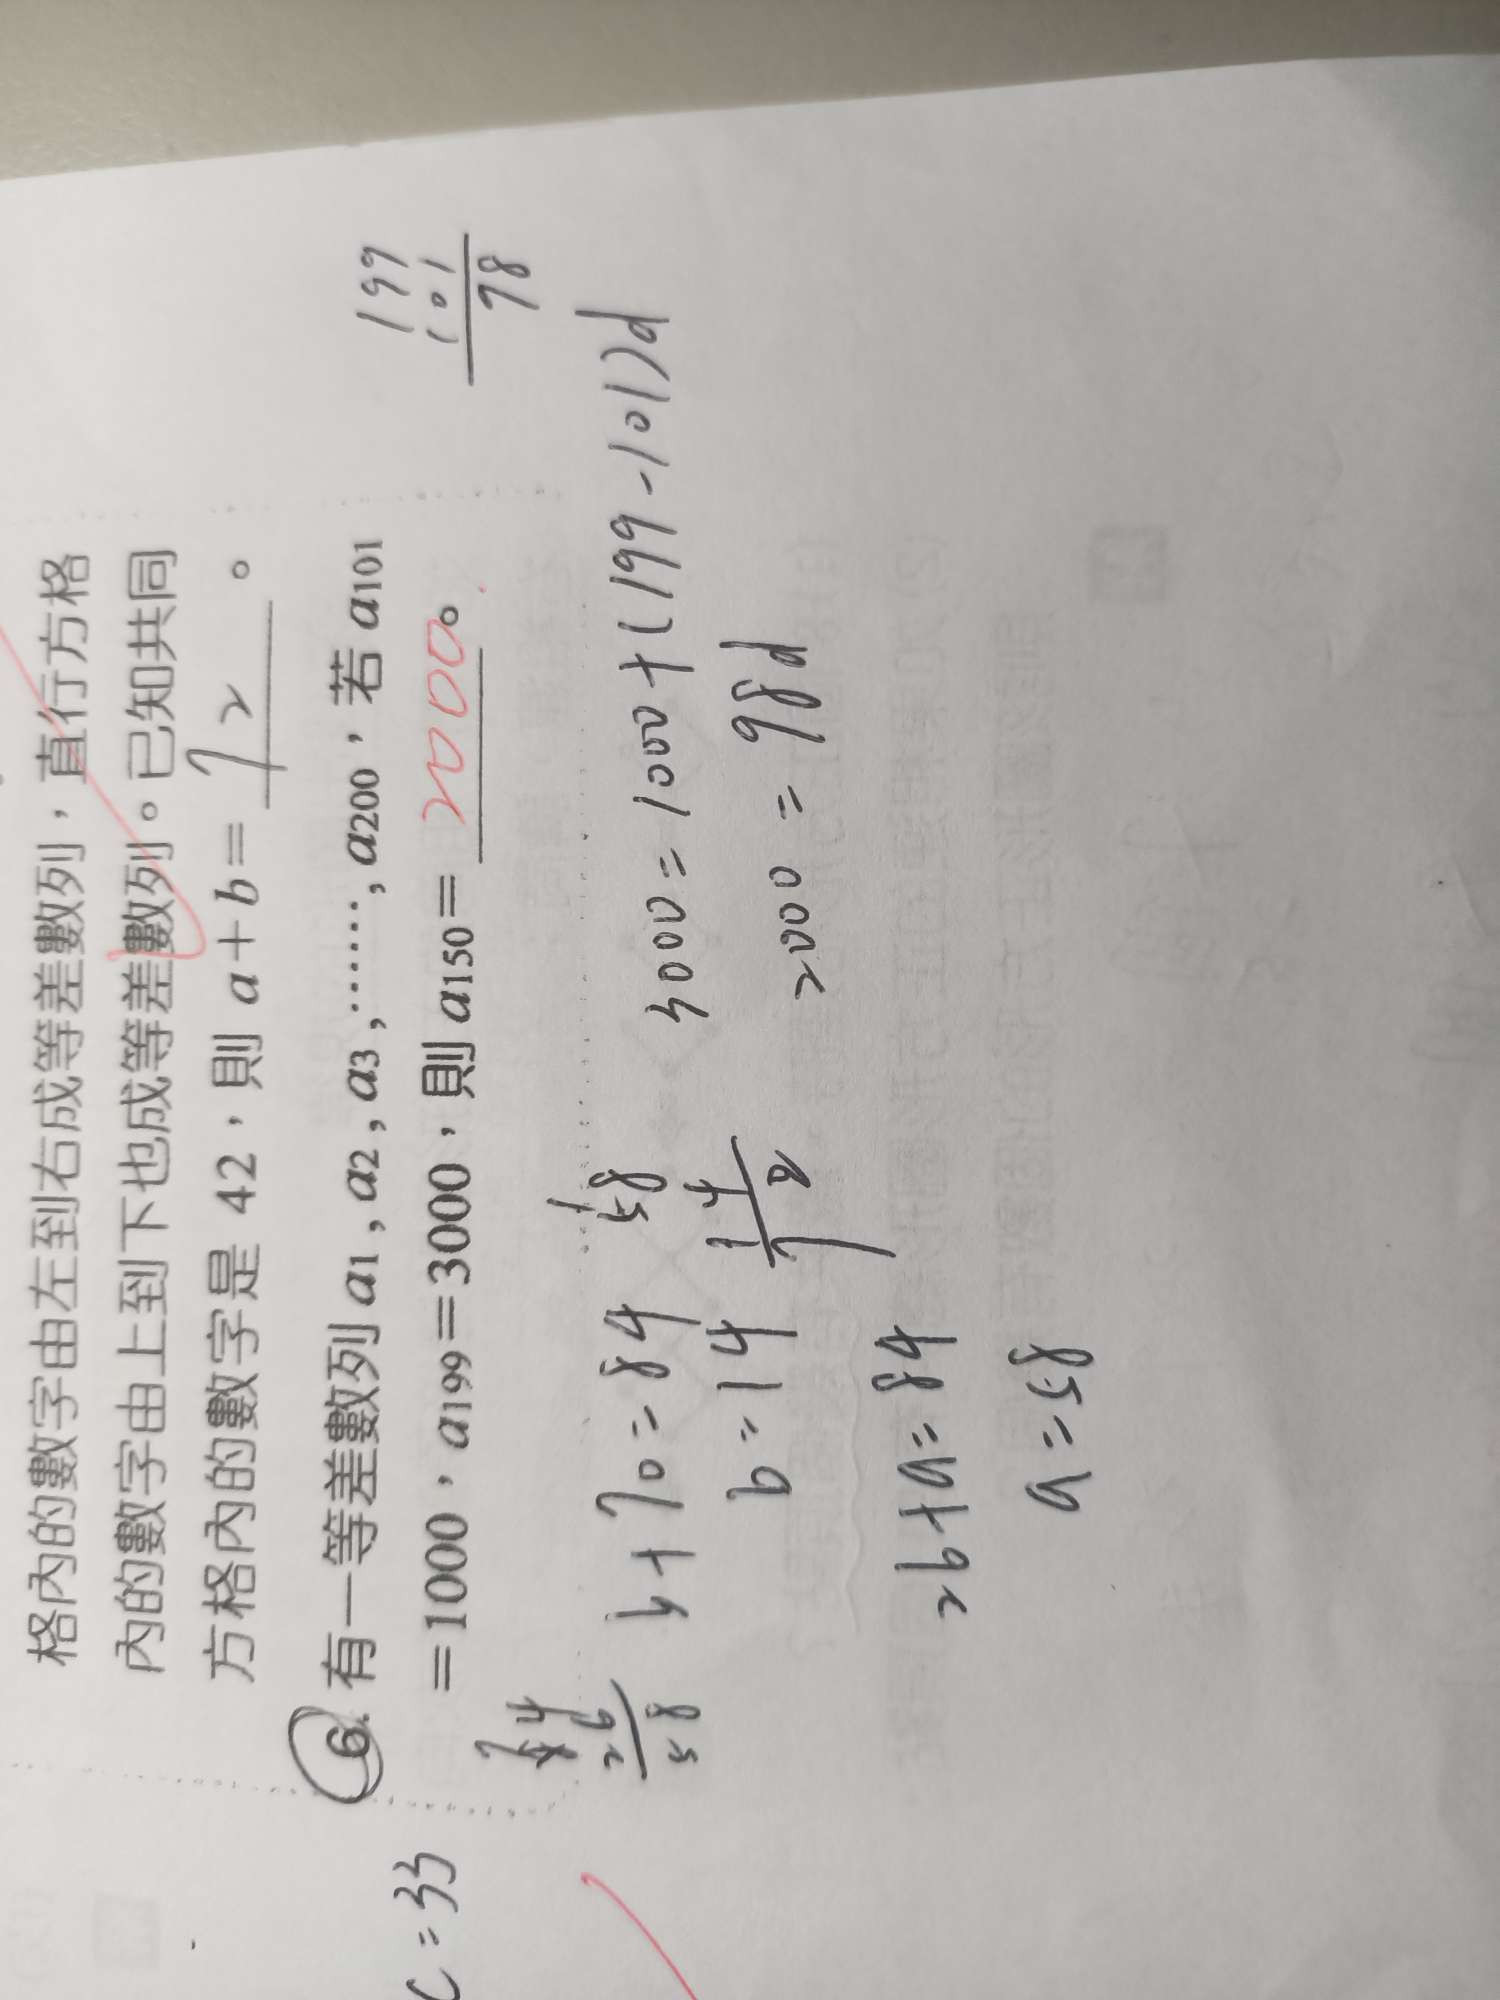 格內的數字由左到右成等差數列，直行方格
內的數字由上到下也成等差數列。已知共同
方格內的數字是 42，則 a＋b＝72。
6. 有一等差數列 a1 , a2 , a3 ,⋯⋯, a200，若 a101
＝1000，a199＝3000，則 a150＝2000。
199
101
98
c=33
84
26
58
14+70=84
b=14
26+a=84
a=58
58
14
72
3000=1000+(199-101)d
2000=98d